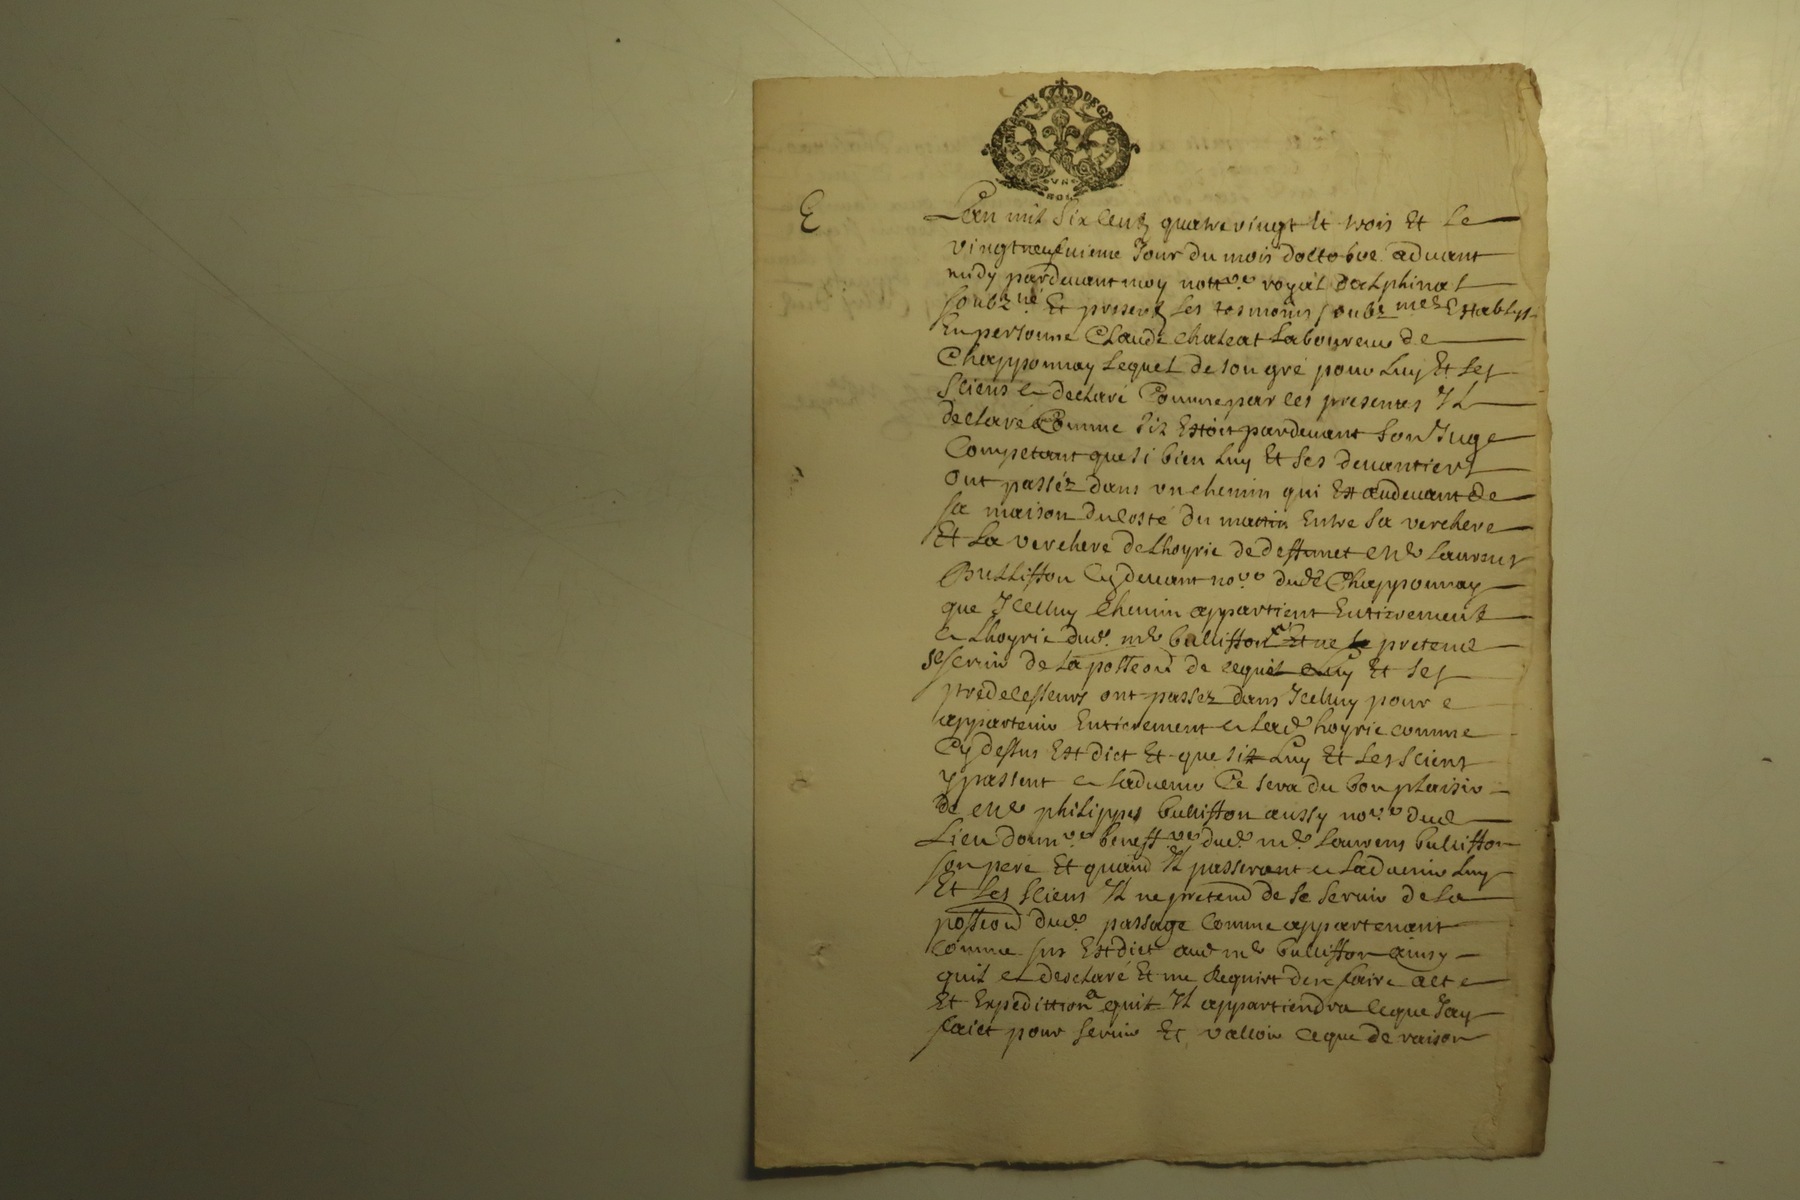 GENERALITE DE GRENOBLE
VN SOL
E
Lan mil six centz quatre vingt et trois et le
vingtneufuieme jour du mois doctobre aduant
midy pardeuant moy nottre royal dalphinal
soubzné et presentz les tesmoins soubznmés establyt
en personne Claude chaleat laboureur de
Chapponnay lequel de son gré pour luy et les
sciens a declaré comme par les presentes Il
declare comme sil estoit pardeuant son Juge
Competant que si bien luy et ses deuantiers
ont passéz dans un chemin qui est audeuant de
sa maison du costé du mattin entre sa verchere
et la verchere de lhoyrie de deffunct Me Laurens
Bullifson cy deuant nore dudt Chapponnay
que Icelluy chemin appartient entierement
a lhoyrie dud. me bullifson et ne pretend
se seruir de la posseon de cequil luy et ses
predecesseurs ont passez dans Icelluy pour
appartenir entierement a lad hoyrie comme
cy dessus est dict et que sil luy et les sciens
y passent a laduenir ce sera du bon plaisir
de Me philippes bullifson aussy nore dud
Lieu donnre beneffre dud. me. Laurens bullifson
son pere et quand Il passeront a laduenir luy
et les sciens Il ne pretend de se seruir de la
posseon dud. passage comme appartenant
comme sus est dict aud me bullifson ainsy
quil a desclaré et me Requist den faire acte
et expedittion a quil Il appartiendra ceque Jay
faict pour seruir et valloir ceque de raison